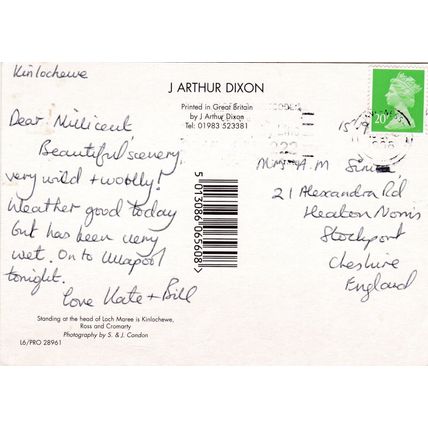 Kinlochewe
J ARTHUR DIXON
Printed in Great Britain
by J Arthur Dixon
Tel: 01983 523381
Dear Millicent,
Beautiful scenery
very wild + woolly!
Weather good today
but has been very
wet. On to Ullapool
tonight.
Love Kate + Bill
Standing at the head of Loch Maree is Kinlochewe,
Ross and Cromarty
Photography by S. & J. Condon
L6/PRO 28961
5 013086 065608>
20
15
A.M
21 Alexandra Rd
Heaton Norris
Stockport
Cheshire
England